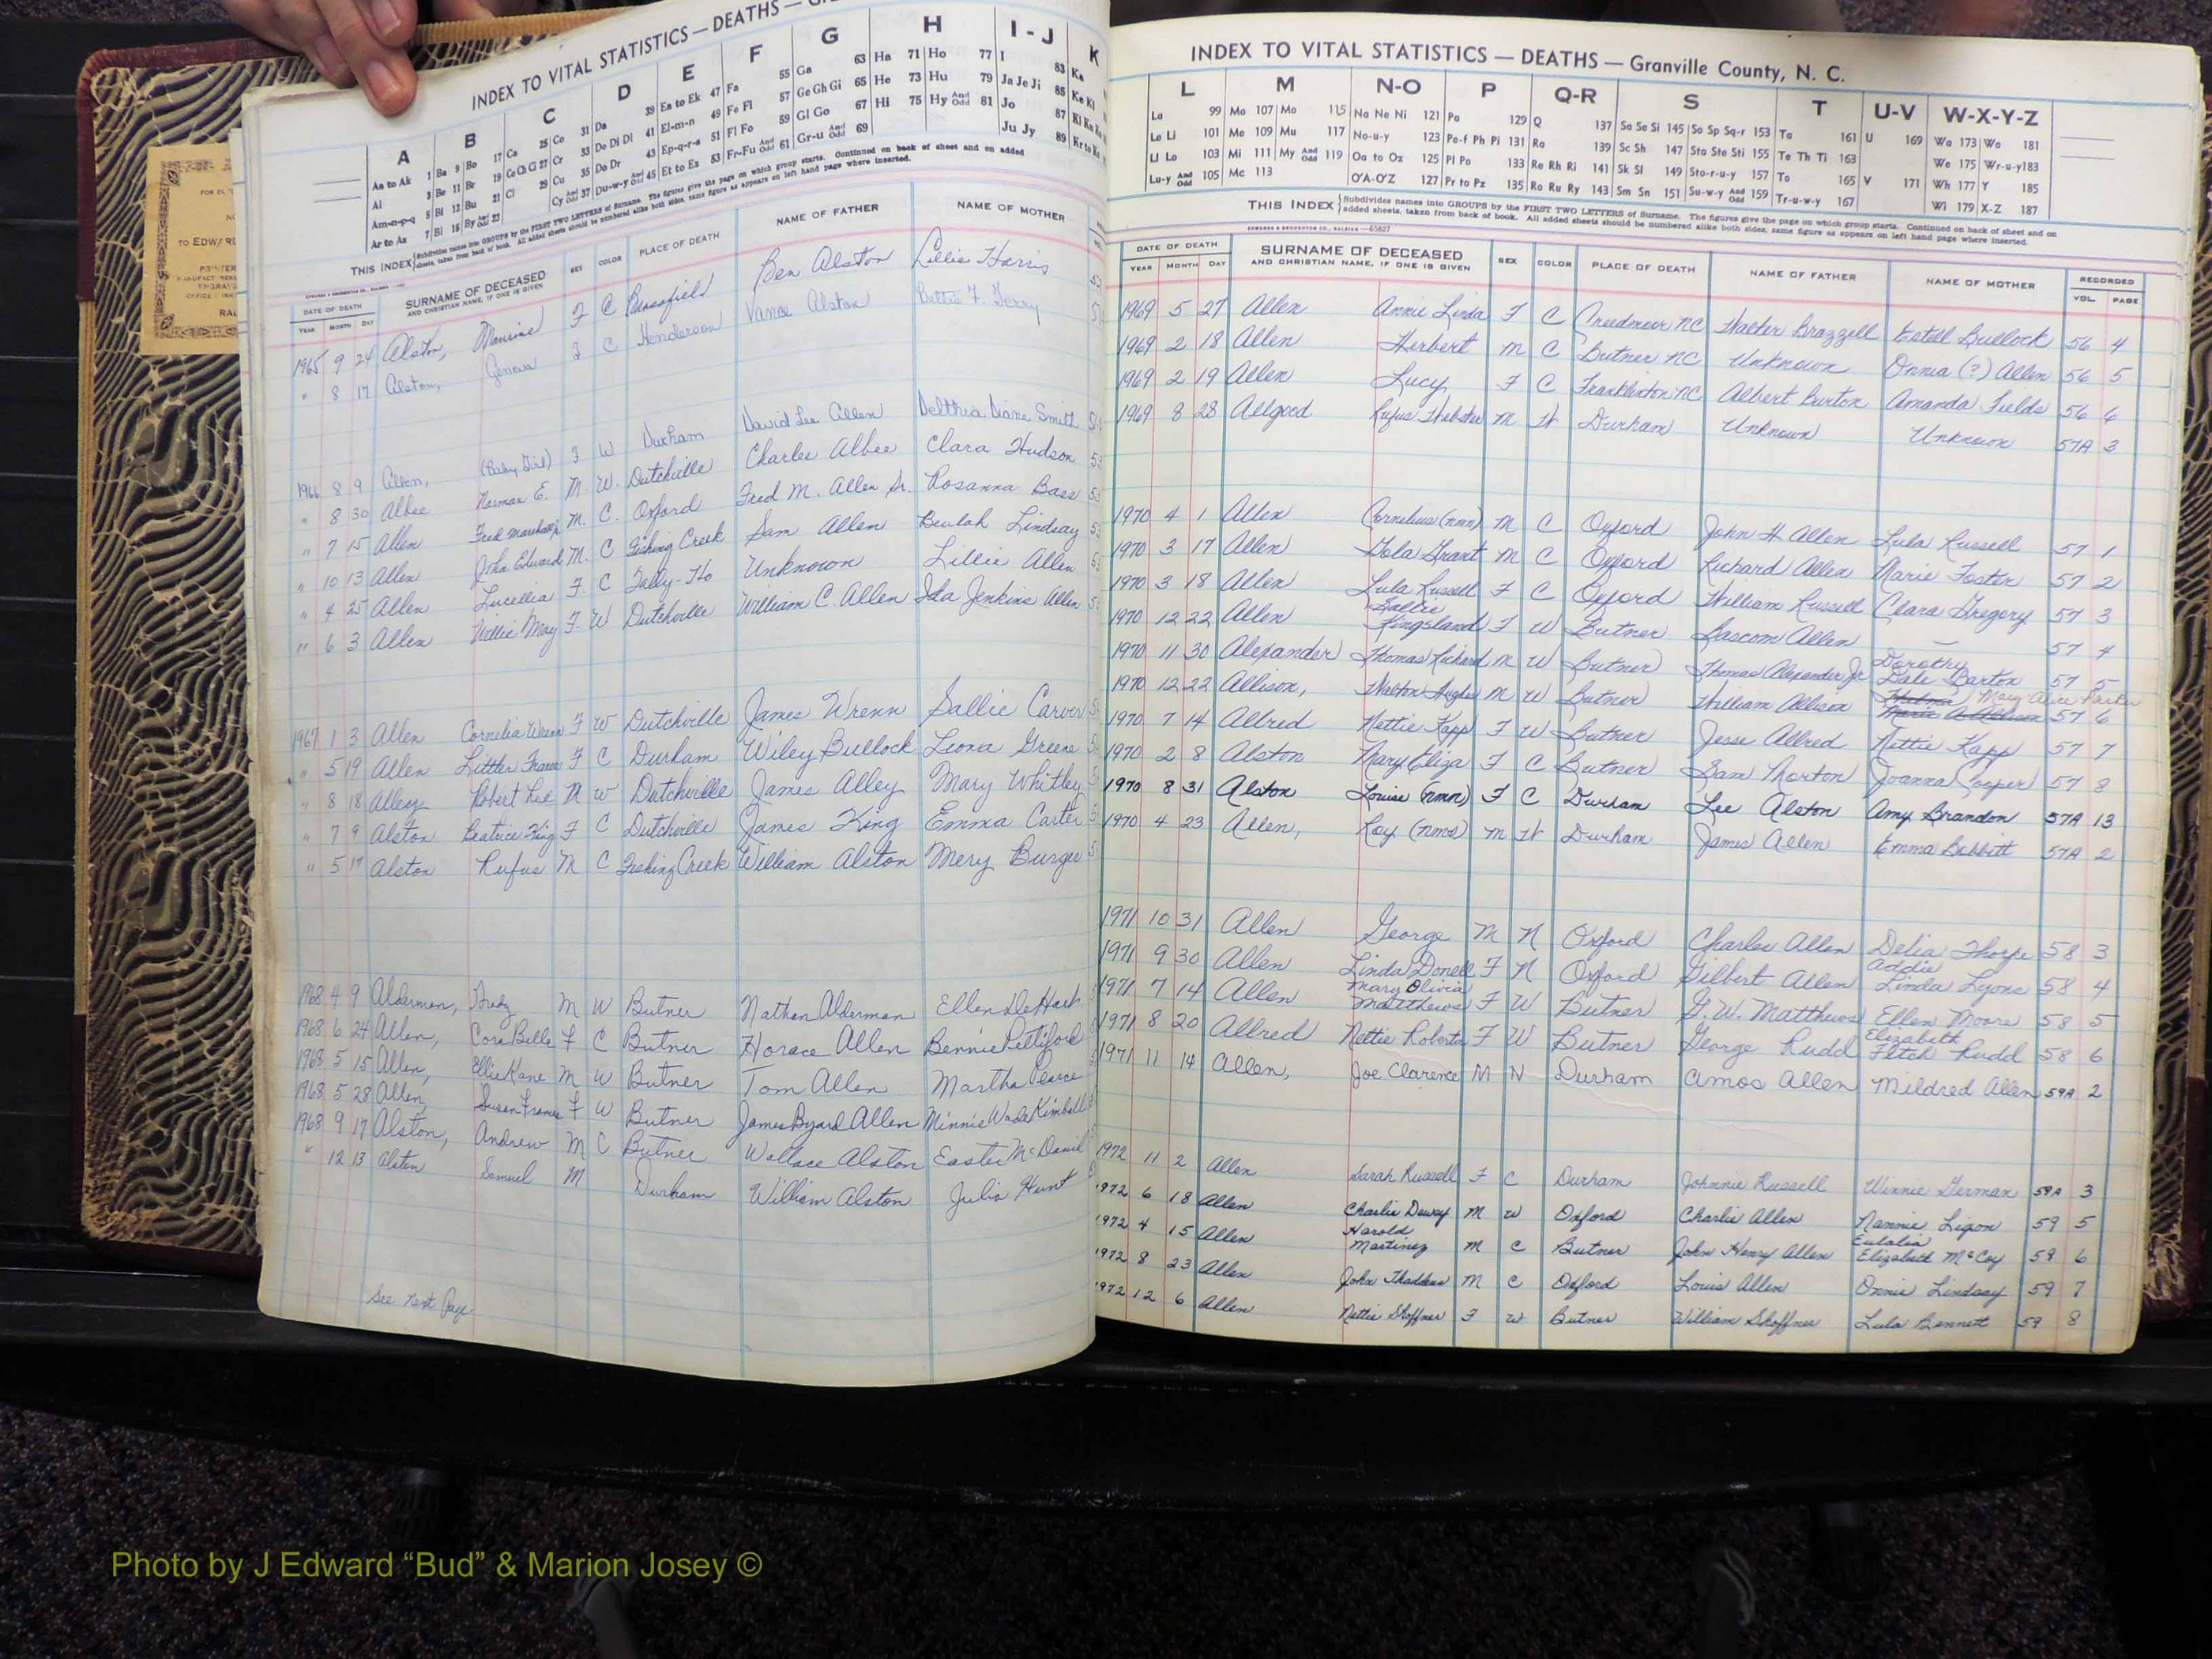 INDEX TO VITAL STATISTICS — DEATHS —
A B C D E F G H I-J K
Aa to Ak 1 Ba 9 Bo 17 Ca 25 Co 31 Da 39 Ea to Ek 47 Fa 55 Ga 63 Ha 71 Ho 77 I 83 Ka
Al 3 Be 11 Br 19 Ce Ch Ci 27 Cr 33 De Di Dl 41 El-m-n 49 Fe Fl 57 Ge Gh Gi 65 He 73 Hu 79 Ja Je Ji 85 Ke Kl
Am-n-p-q 5 Bi 13 Bu 21 Cl 29 Cu 35 Do Dr 43 Ep-q-r-s 51 Fl Fo 59 Gl Go 67 Hi 75 Hy And Odd 81 Jo 87
Ar to Az 7 Bl 15 By And Odd 23 Cy And Odd 37 Du-w-y And Odd 45 Et to Ez 53 Fr-Fu And Odd 61 Gr-u And Odd 69 Ju Jy 89
THIS INDEX Subdivides names into GROUPS by the FIRST TWO LETTERS of Surname. The figures give the page on which group starts. Continued on back of sheet and on added
sheets, taken from back of book. All added sheets should be numbered alike both sides, same figure as appears on left hand page where inserted.
DATE OF DEATH SURNAME OF DECEASED SEX COLOR PLACE OF DEATH NAME OF FATHER NAME OF MOTHER
YEAR MONTH DAY AND CHRISTIAN NAME, IF ONE IS GIVEN
1965 9 24 Alston, Maurine F C Brassfield Ben Alston Lillie Harris
" 8 17 Alston, Geneva F C Henderson Vance Alston Bettie F. Terry
1966 8 9 Allen, (Baby Girl) F W Durham David Lee Allen Delthia Diane Smith
" 8 30 Albee Norman E. M. W. Dutchville Charles Albee Clara Hudson
" 7 15 Allen Fred Marshall M. C. Oxford Fred M. Allen Sr. Rosanna Bass
" 10 13 Allen John Edward M. C Fishing Creek Sam Allen Beulah Lindsay
" 4 25 Allen Lucellia F. C Sally-Ho Unknown Lillie Allen
" 6 3 Allen Willie May F. W Dutchville William C. Allen Ida Jenkins Allen
1967 1 3 Allen Cornelia Wrenn F W Dutchville James Wrenn Sallie Carver
" 5 19 Allen F C Durham Wiley Bullock Leona Greene
" 8 18 Alley Robert Lee M W Dutchville James Alley Mary Whitley
" 7 9 Alston Beatrice King F C Dutchville James King Emma Carter
" 5 17 Alston Rufus M C Fishing Creek William Alston Mery Burge
1968 4 9 Alderman, M W Butner Nathan Alderman Ellen DeHart
1968 6 24 Allen, Cora Belle F C Butner Horace Allen Bennie Pettiford
1968 5 15 Allen, Ellie Kane M W Butner Tom Allen Martha Pearce
1968 5 28 Allen, Susan Frances F W Butner James Byard Allen Minnie Wade Kimball
1968 9 17 Alston, Andrew M C Butner Wallace Alston Easter McDaniel
" 12 13 Alston Samuel M Durham William Alston Julia Hunt
See next Page
INDEX TO VITAL STATISTICS — DEATHS — Granville County, N. C.
L M N-O P Q-R S T U-V W-X-Y-Z
La 99 Ma 107 Mo 115 Na Ne Ni 121 Pa 129 Q 137 Sa Se Si 145 So Sp Sq-r 153 Ta 161 U 169 Wa 173 Wo 181
Le Li 101 Me 109 Mu 117 No-u-y 123 Pe-f Ph Pi 131 Ra 139 Sc Sh 147 Sta Ste Sti 155 Te Th Ti 163 We 175 Wr-u-y 183
Ll Lo 103 Mi 111 My And Odd 119 Oa to Oz 125 Pl Po 133 Re Rh Ri 141 Sk Sl 149 Sto-r-u-y 157 To 165 V 171 Wh 177 Y 185
Lu-y And Odd 105 Mc 113 O'A-O'Z 127 Pr to Pz 135 Ro Ru Ry 143 Sm Sn 151 Su-w-y And Odd 159 Tr-u-w-y 167 Wi 179 X-Z 187
THIS INDEX Subdivides names into GROUPS by the FIRST TWO LETTERS of Surname. The figures give the page on which group starts. Continued on back of sheet and on
added sheets, taken from back of book. All added sheets should be numbered alike both sides, same figure as appears on left hand page where inserted.
EDWARDS & BROUGHTON CO., RALEIGH —65827
DATE OF DEATH SURNAME OF DECEASED SEX COLOR PLACE OF DEATH NAME OF FATHER NAME OF MOTHER RECORDED
YEAR MONTH DAY AND CHRISTIAN NAME, IF ONE IS GIVEN VOL. PAGE
1969 5 27 Allen Annie Linda F C Creedmoor NC Walter Brazzell Estell Bullock 56 4
1969 2 18 Allen Herbert M C Butner NC Unknown Onnia (?) Allen 56 5
1969 2 19 Allen Lucy F C Franklinton NC Albert Burton Amanda Fields 56 6
1969 8 28 Allgood Rufus Thebster M W Durham Unknown Unknown 57A 3
1970 4 1 Allen Cornelius (nmn) M C Oxford John H Allen Lula Russell 57 1
1970 3 17 Allen Gola Grant M C Oxford Richard Allen Marie Foster 57 2
1970 3 18 Allen Lula Russell F C Oxford William Russell Clara Gregory 57 3
1970 12 22 Allen Sallie Kingsland F W Butner Lascom Allen — 57 4
1970 11 30 Alexander Thomas Richard M W Butner Thomas Alexander Jr Dorothy Dale Barton 57 5
1970 12 22 Allison, Walton Hughes M W Butner William Allison Mary Alice Parker 57 6
1970 7 14 Allred Nettie Kapp F W Butner Jesse Allred Nettie Kapp 57 7
1970 2 8 Alston Mary Eliza F C Butner Sam Norton Joanna Cooper 57 8
1970 8 31 Alston Louise (nmn) F C Durham Lee Alston Amy Brandon 57A 13
1970 4 23 Allen, Roy (nmn) M W Durham James Allen Emma Bobbitt 57A 2
1971 10 31 Allen George M N Oxford Charles Allen Delia Thorpe 58 3
1971 9 30 Allen Linda Donell F N Oxford Gilbert Allen Addie Linda Lyons 58 4
1971 7 14 Allen Mary Olivia Matthews F W Butner G. W. Matthews Ellen Moore 58 5
1971 8 20 Allred Nettie Roberta F W Butner George Rudd Elizabeth Fitch Rudd 58 6
1971 11 14 Allen, Joe Clarence M N Durham Amos Allen Mildred Allen 59A 2
1972 11 2 Allen Sarah Russell F C Durham Johnnie Russell Winnie German 59A 3
1972 6 18 Allen Charlie Dewey M W Oxford Charlie Allen Nannie Ligon 59 5
1972 4 15 Allen Harold Martinez M C Butner John Henry Allen Eulalia Elizabeth McCoy 59 6
1972 8 23 Allen John Thaddeus M C Oxford Louis Allen Onnie Lindsay 59 7
1972 12 6 Allen Nettie Shoffner F W Butner William Shoffner Lula Bennett 59 8
Photo by J Edward “Bud” & Marion Josey ©